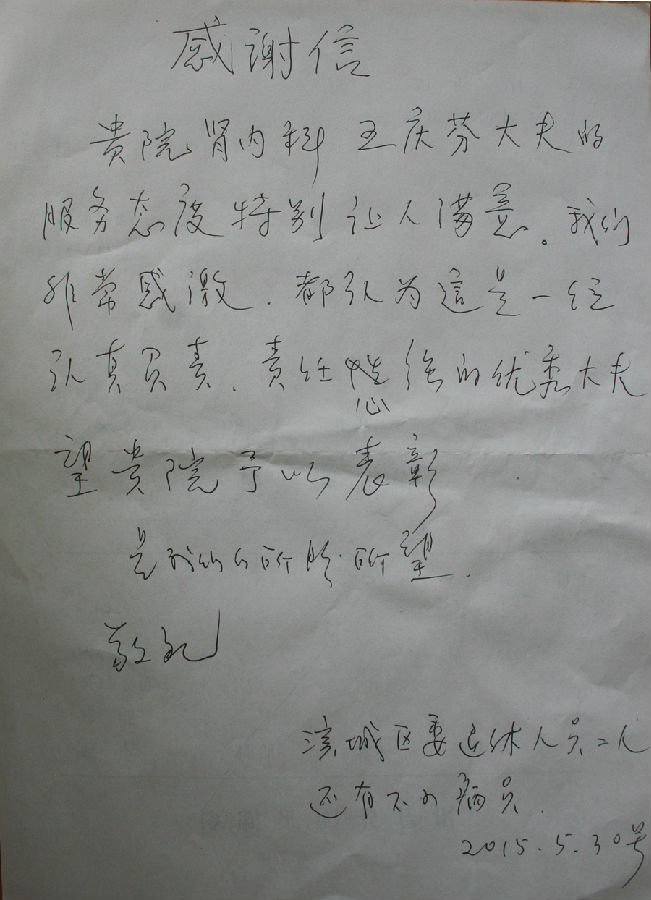 感谢信
贵院肾内科 王庆芬大夫的
服务态度特别让人满意。我们
非常感激.都认为這是一位
认真负责.责任心强的优秀大夫
望贵院予以表彰
是我们的所盼所望.
敬礼
滨城区委退休人员二人
还有不少病员.
2015.5.30号